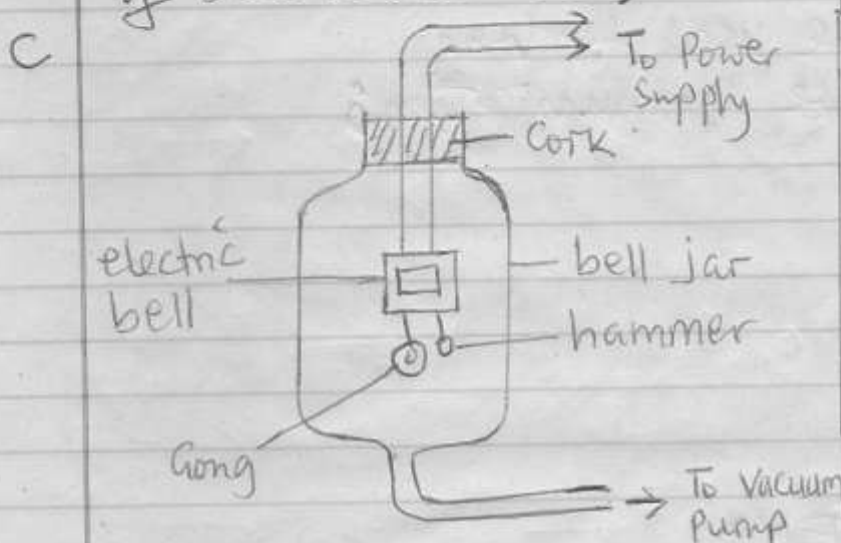 C
To Power
Supply
Cork
electric
bell
bell jar
hammer
Gong
To Vacuum
Pump